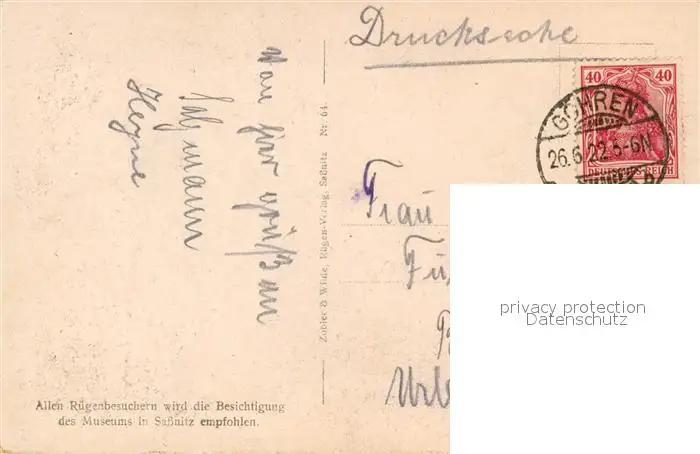 Drucksache
40 40
GÖHREN
26.6.22.5-6N
DEUTSCHES REICH
Von hier grüßen
Heyne
Zobler & Wilde, Rügen-Verlag, Saßnitz Nr. 64
Frau
privacy protection
Datenschutz
Allen Rügenbesuchern wird die Besichtigung
des Museums in Saßnitz empfohlen.